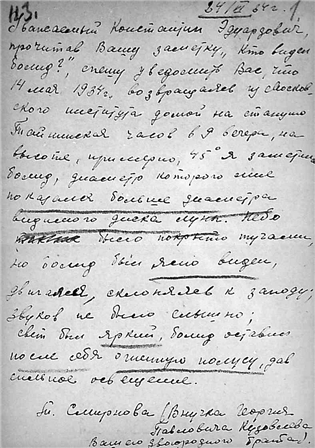 113. 24/VI 34 г.
Уважаемый Константин Эдуардович,
прочитав Вашу заметку, "Кто видел
болид?", спешу уведомить Вас, что
14 мая 1934г. возвращаясь из Москов-
ского института домой на станцию
Тайнинская часов в 9 вечера, на
высоте, примерно, 45° я заметила
болид, диаметр которого мне
показался больше диаметра
видимого диска луны. Небо
было покрыто тучами,
но болид был ясно виден,
двигался, склоняясь к западу;
звуков не было слышно;
свет был яркий, болид оставил
после себя огненную полосу, дав
сильное освещение.
Т. Смирнова (Внучка Георгия
Павловича
Вашего двоюродного брата).